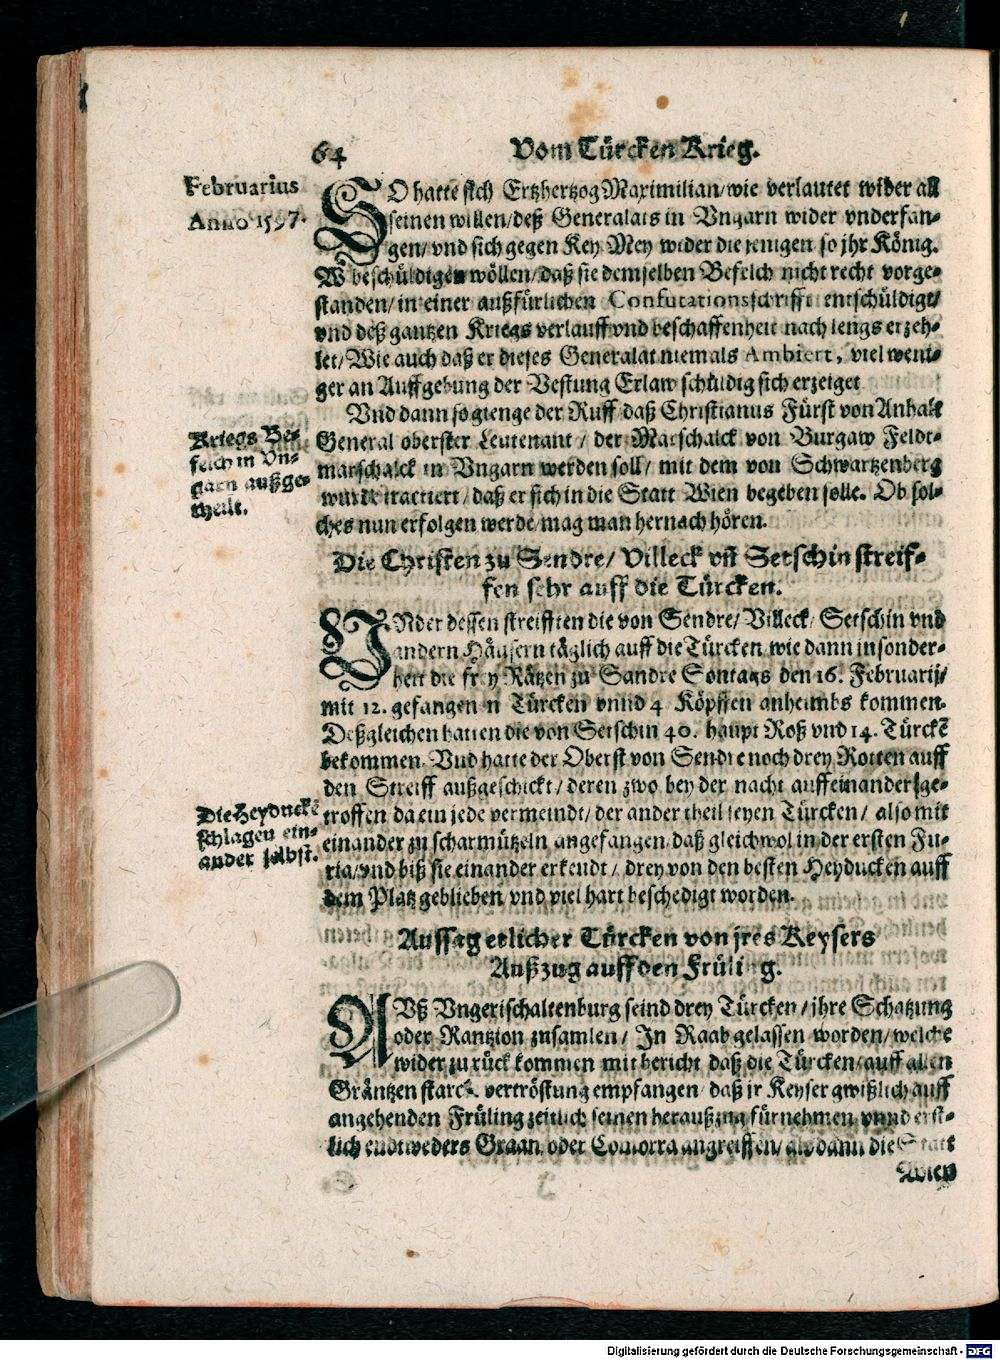 64 Vom Türcken Krieg.
Februarius
Anno 1597.
SO hatte sich Ertzhertzog Maximilian/ wie verlautet wider all
seinen willen/ deß Generalats in Vngarn wider vnderfan-
gen/ vnd sich gegen Key Mey wider die jenigen so jhr König.
W beschüldigen wöllen/ daß sie demselben Befelch nicht recht vorge-
standen/ in einer außfürlichen Confutationsschrifft entschüldigt/
vnd deß gantzen Kriegs verlauff vnd beschaffenheit nach lengs erzeh-
let/ Wie auch daß er dieses Generalat niemals Ambiert, viel weni-
ger an Auffgebung der Vestung Erlaw schüldig sich erzeiget
Vnd dann so gienge der Ruff daß Christianus Fürst von Anhalt
General oberster Leutenant/ der Marschalck von Burgaw Feldt-
marschalck in Vngarn werden soll/ mit dem von Schwartzenberg
wurde tractiert/ daß er sich in die Statt Wien begeben solle. Ob sol-
ches nun erfolgen werde/ mag man hernach hören.
Kriegs Be-
felch in Vn-
garn außge-
theilt.
Die Christen zu Sendre/ Villeck vñ Setschin streif-
fen sehr auff die Türcken.
VNder dessen streifften die von Sendre/ Villeck/ Setschin vnd
andern Häusern täglich auff die Türcken/ wie dann insonder-
heit die frey Rätzen zu Sandre Sontags den 16. Februarij/
mit 12. gefangenen Türcken vnnd 4 Köpffen anheimbs kommen.
Deßgleichen hatten die von Setschin 40. haupt Roß vnd 14. Türckē
bekommen. Vnd hatte der Oberst von Sendre noch drey Rotten auff
den Streiff außgeschickt/ deren zwo bey der nacht auff einander ge-
troffen da ein jede vermeindt/ der ander theil seyen Türcken/ also mit
einander zu scharmützeln angefangen/ daß gleichwol in der ersten Fu-
ria/ vnd biß sie einander erkendt/ drey von den besten Heyducken auff
dem Platz geblieben/ vnd viel hart beschedigt worden.
Die Heyduckē
schlagen ein-
ander selbst.
Aussag etlicher Türcken von jres Keysers
Außzug auff den Früling.
AVß Vngerischaltenburg seind drey Türcken/ ihre Schatzung
oder Rantzion zusamlen/ In Raab gelassen worden/ welche
wider zu rück kommen mit bericht daß die Türcken/ auff allen
Gräntzen starck vertröstung empfangen/ daß ir Keyser gwißlich auff
angehenden Früling zeitlich seinen heraußzug fürnehmen vnnd erst-
lich eudtweders Graan, oder Comorra angreiffen/ als dann die Statt
Wien
Digitalisierung gefördert durch die Deutsche Forschungsgemeinschaft - DFG